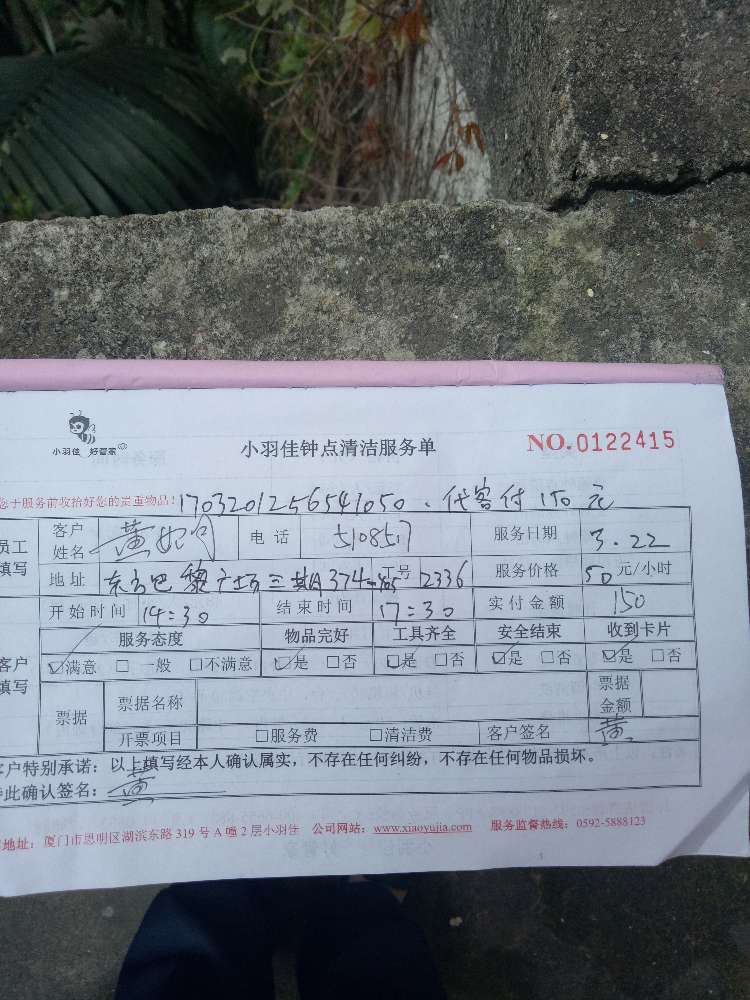 小羽佳 好管家
小羽佳钟点清洁服务单
NO.0122415
您于服务前收拾好您的贵重物品!
1703201256541050、代客付150元
员工填写
客户姓名 黄 电话 5108517 服务日期 3.22
地址 东方巴黎广场三期374-405 工号 2336 服务价格 50元/小时
客户填写
开始时间 14:30 结束时间 17:30 实付金额 150
服务态度 物品完好 工具齐全 安全结束 收到卡片
☑满意 □一般 □不满意 ☑是 □否 ☑是 □否 ☑是 □否 ☑是 □否
票据 票据名称 票据金额
开票项目 □服务费 □清洁费 客户签名 黄
客户特别承诺：以上填写经本人确认属实，不存在任何纠纷，不存在任何物品损坏。
此确认签名：黄
地址：厦门市思明区湖滨东路 319 号 A 幢 2 层小羽佳 公司网站：www.xiaoyujia.com 服务监督热线：0592-5888123